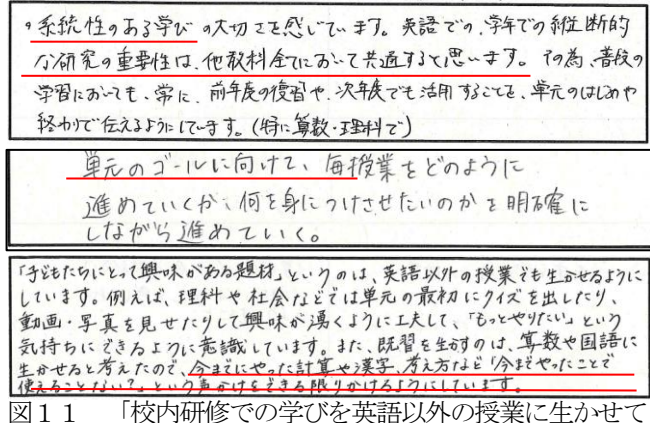 ・系統性のある学び の大切さを感じています。英語での、学年での縦断的
な研究の重要性は、他教科全てにおいて共通すると思います。その為、普段の
学習においても、常に、前年度の復習や、次年度でも活用することを、単元のはじめや
終わりで伝えるようにしています。(特に算数・理科で)
単元のゴールに向けて、毎授業をどのように
進めていくか、何を身につけさせたいのかを明確に
しながら進めていく。
「子どもたちにとって興味がある題材」というのは、英語以外の授業でも生かせるように
しています。例えば、理科や社会などでは単元の最初にクイズを出したり、
動画・写真を見せたりして興味が湧くように工夫して、「もっとやりたい」という
気持ちにできるように意識しています。また、既習を生かすのは、算数や国語に
生かせると考えたので、今までにやった計算や漢字、考え方など「今までやったことで
使えることない?」という声かけをできる限りかけるようにしています。
図11 「校内研修での学びを英語以外の授業に生かせて